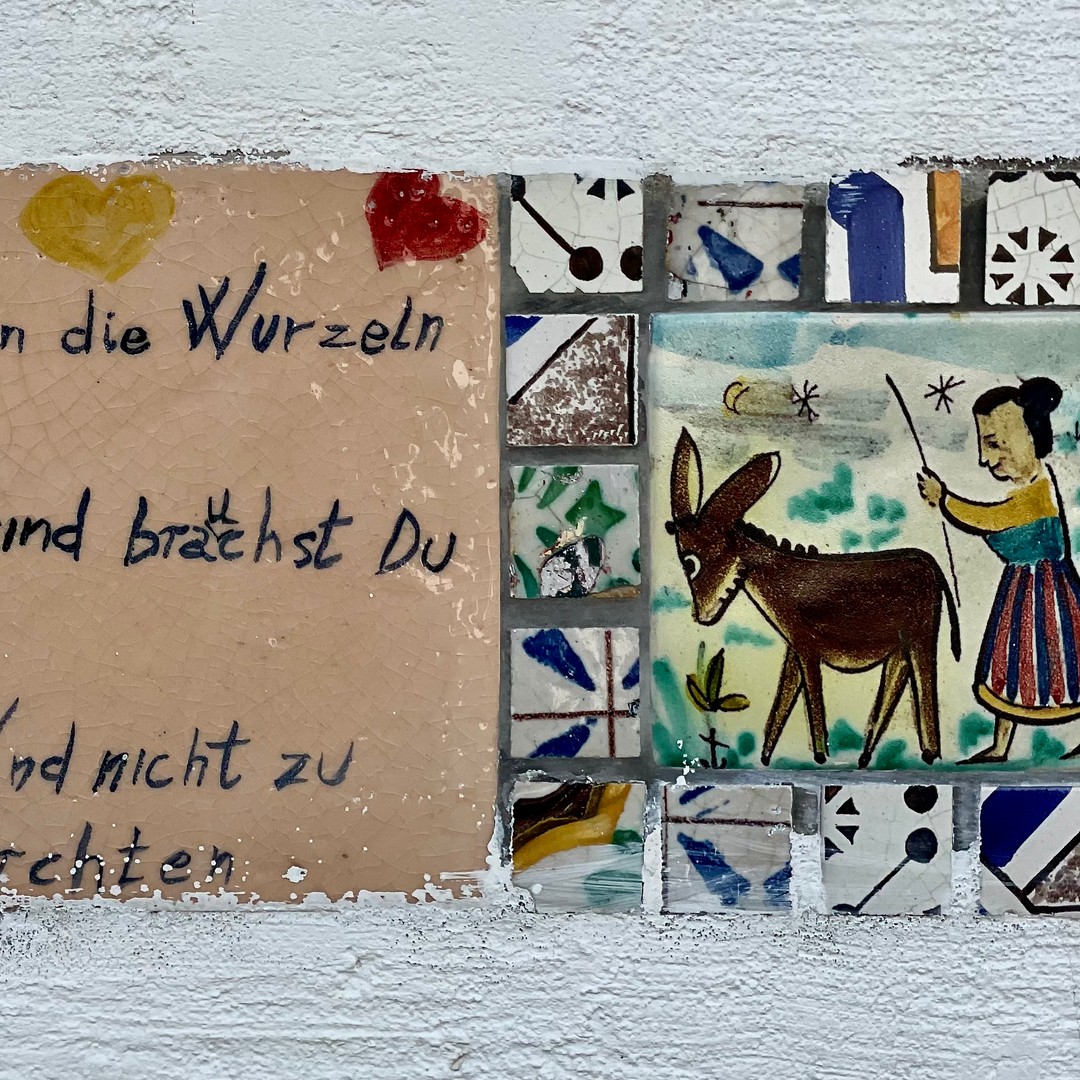 n die Wurzeln
ind brauchst Du
ind nicht zu
rchten